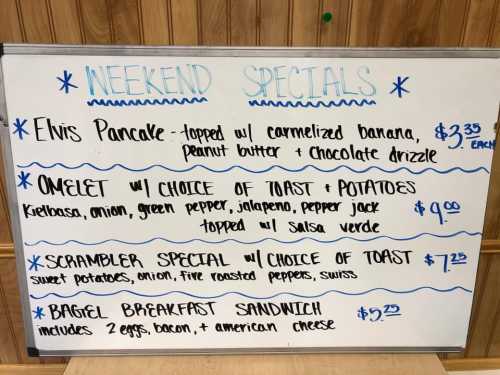 * WEEKEND SPECIALS *
* Elvis Pancake -- topped w/ carmelized banana, $3.35
peanut butter + chocolate drizzle EACH
* OMELET w/ CHOICE OF TOAST + POTATOES
Kielbasa, onion, green pepper, jalapeno, pepper jack $9.00
topped w/ salsa verde
* SCRAMBLER SPECIAL w/ CHOICE OF TOAST $7.25
sweet potatoes, onion, fire roasted peppers, swiss
* BAGEL BREAKFAST SANDWICH $5.25
includes 2 eggs, bacon, + american cheese